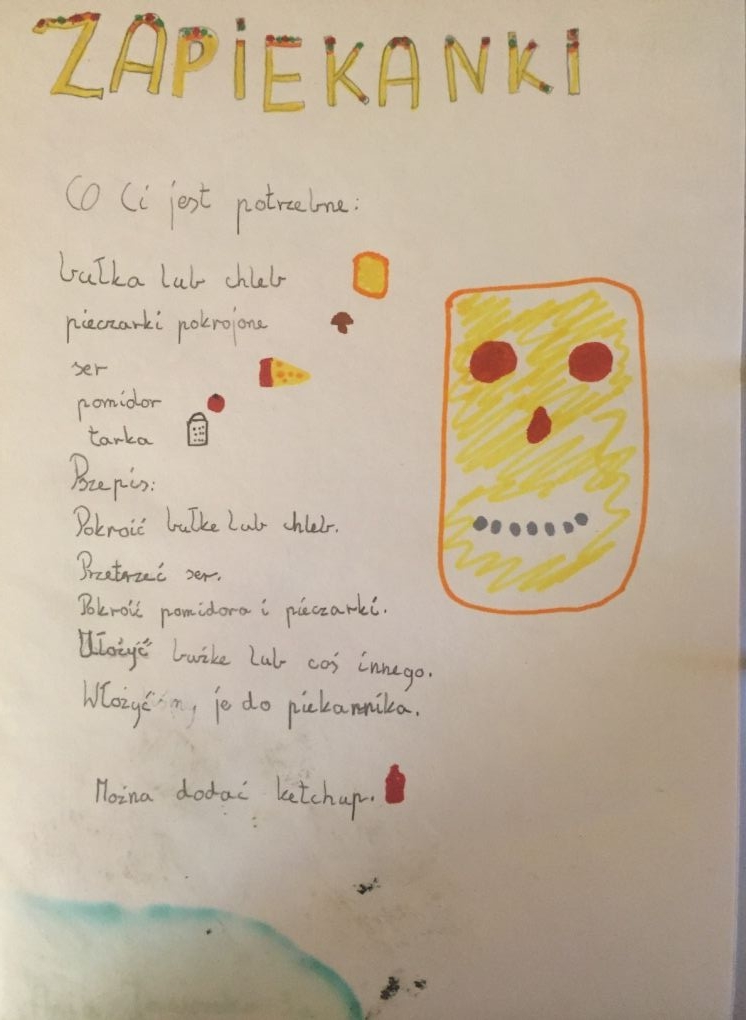 ZAPIEKANKI
CO Ci jest potrzebne:
bułka lub chleb
pieczarki pokrojone
ser
pomidor
tarka
Przepis:
Pokroić bułke lub chleb.
Przetrzeć ser.
Pokroić pomidora i pieczarki.
Ułożyć buźke lub coś innego.
Włożyć je do piekarnika.
Można dodać ketchup.